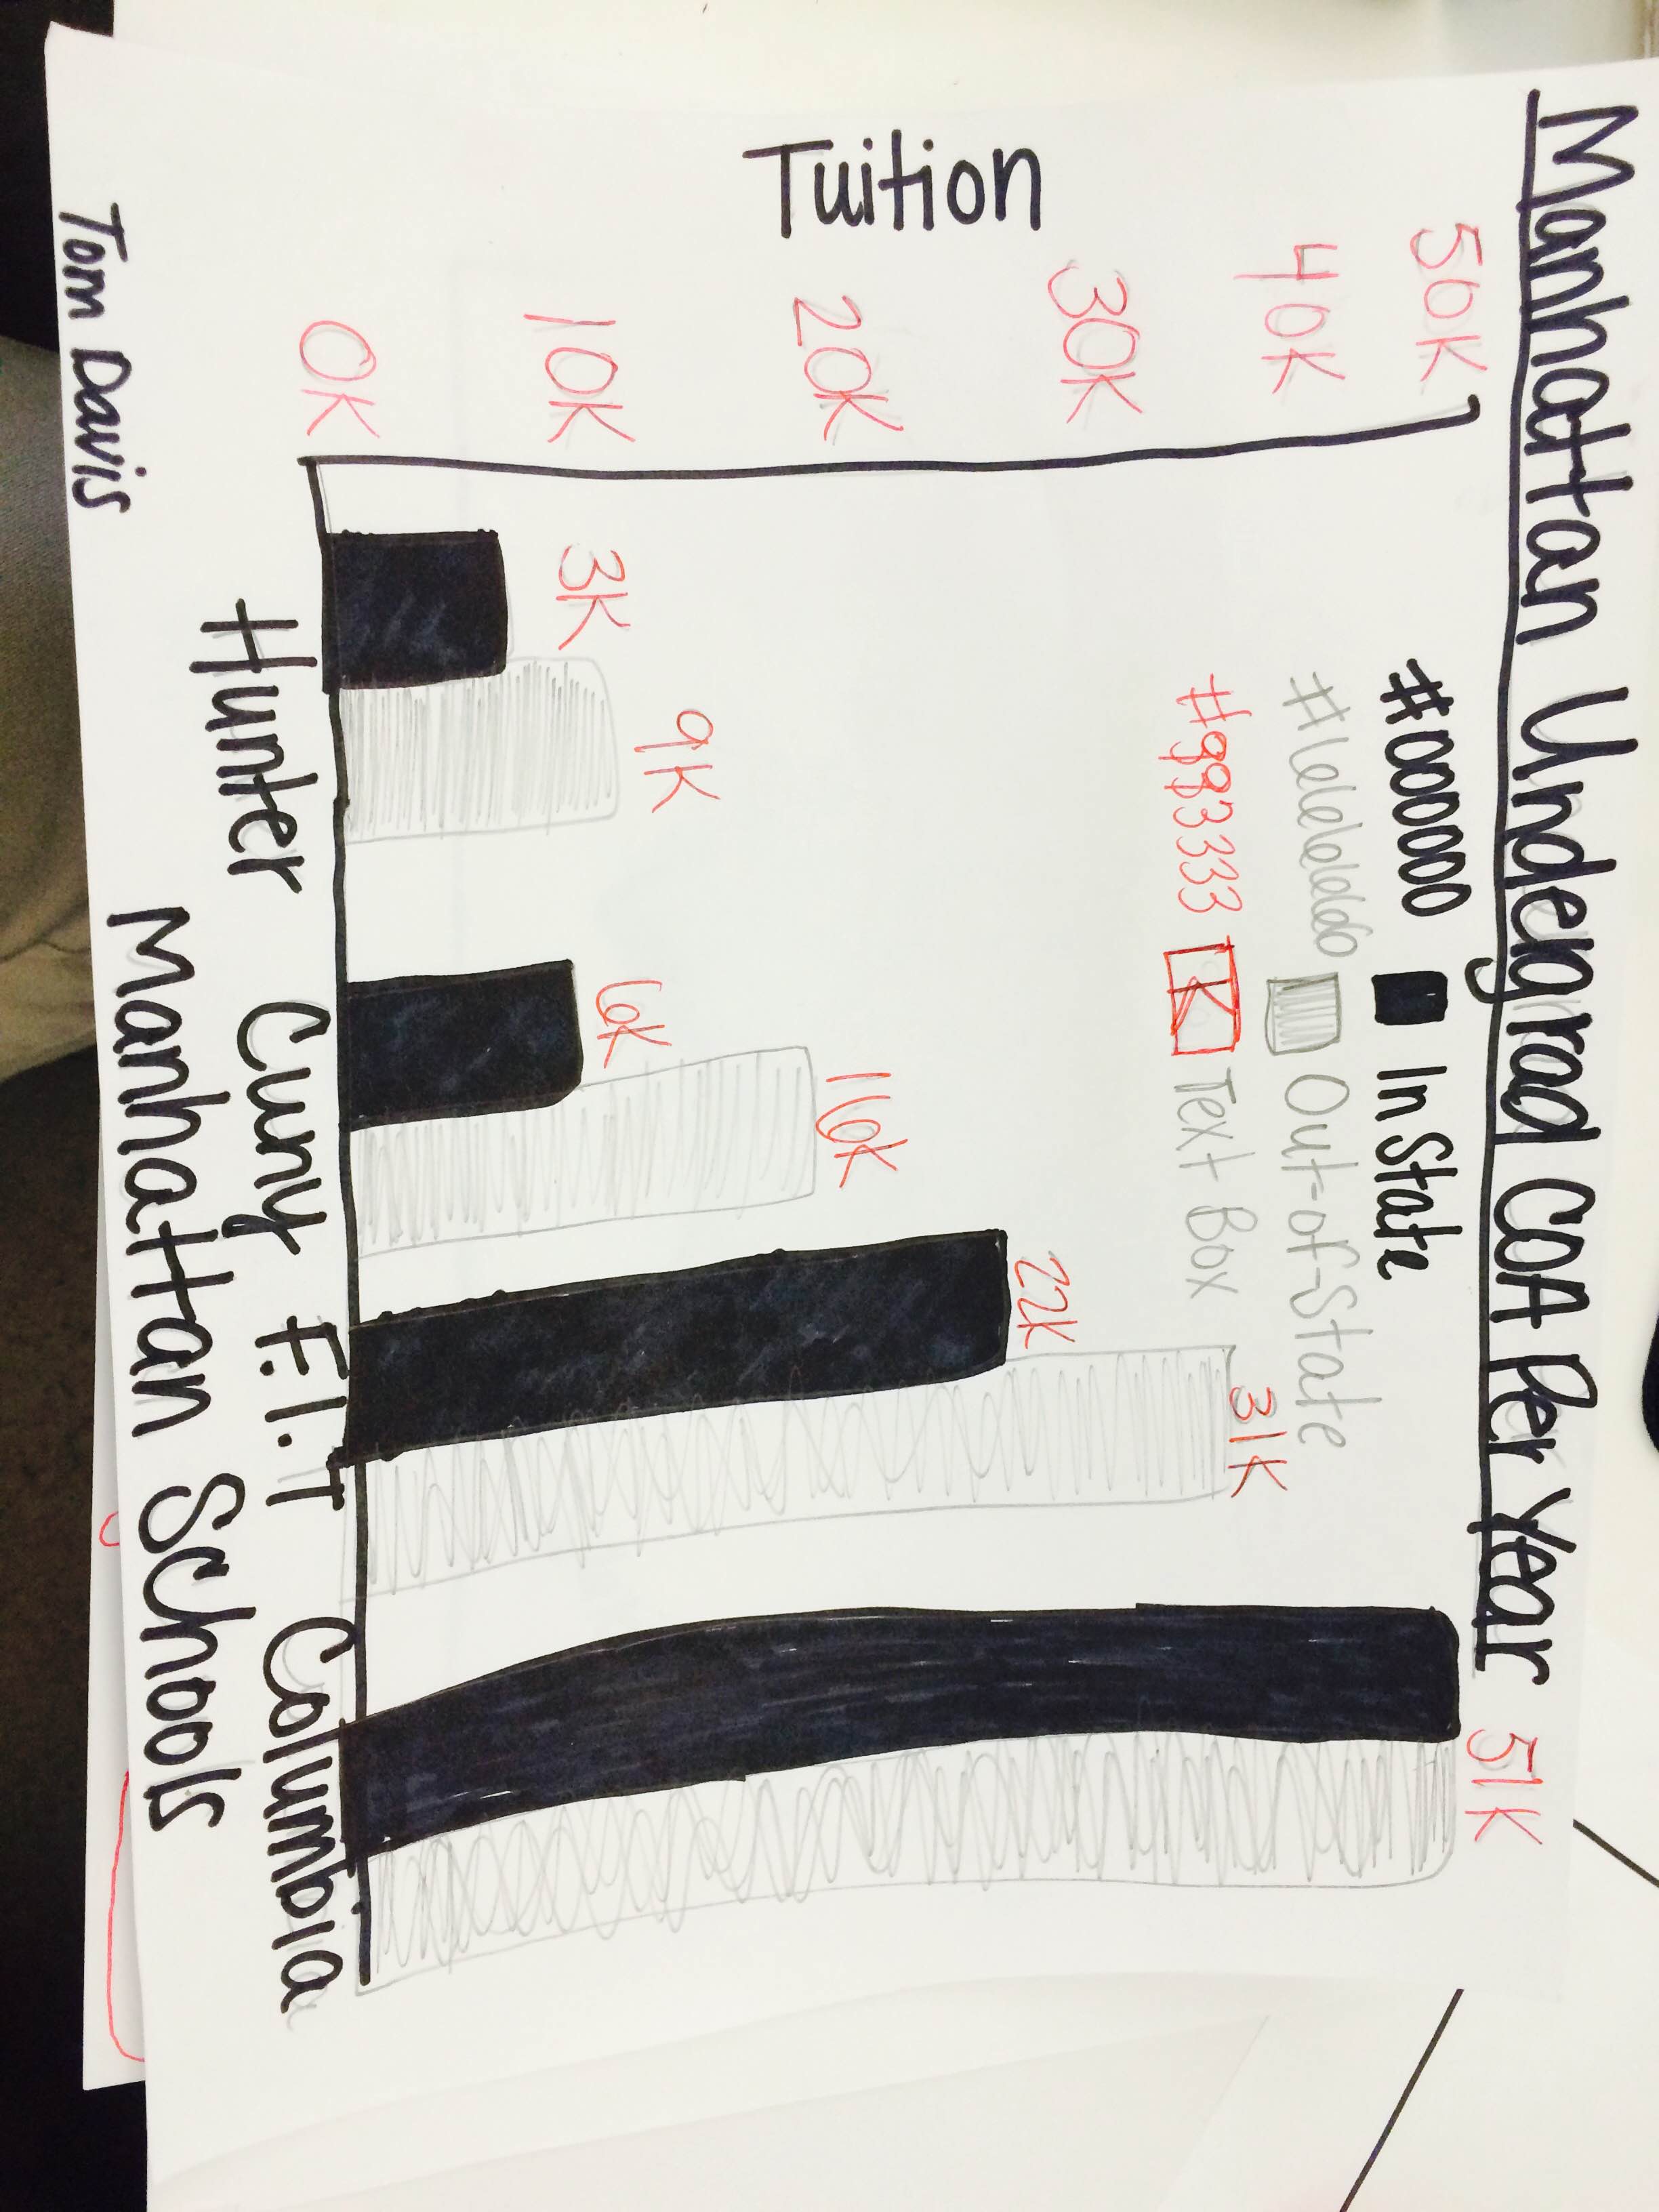 Manhattan Undergrad COA Per Year
#000000 In State
#666666 Out-of-State
#993333 K Text Box
Tuition
50K
40K
30K
20K
10K
0K
3K
9K
6K
16K
22K
31K
51K
Hunter Cuny F.I.T Columbia
Manhattan Schools
Tom Davis